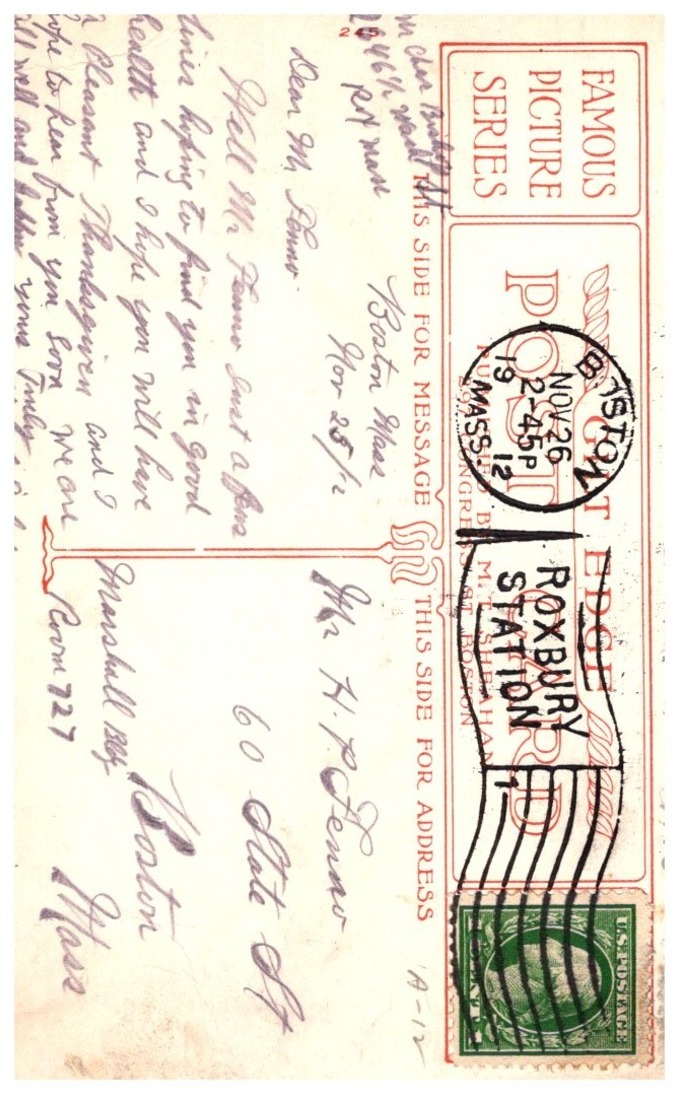 245
FAMOUS
PICTURE
SERIES
GILT EDGE
POST CARD
PUBLISHED BY M.T. SHEAHAN
CONGRESS ST BOSTON
BOSTON
NOV 26
2-45P
19 12
MASS.
ROXBURY
STATION
1
U.S. POSTAGE
THIS SIDE FOR MESSAGE
THIS SIDE FOR ADDRESS
A-12
Boston Mass
Nov 25/12
Dear Mr Fenno
Well Mr Fenno Just a few
lines hoping to find you in good
health and I hope you will have
a Pleasant Thanksgiven and I
hope to hear from you soon we are
all well and yours Truly
Mr H. P. Fenno
60 State St
Boston
Mass
Marshall Bldg
Room 727